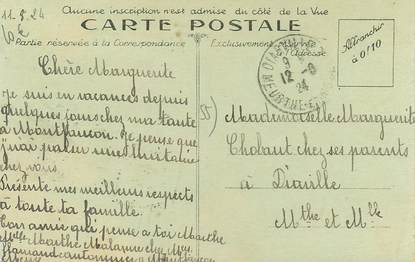 Aucune inscription n'est admise du côté de la Vue
CARTE POSTALE
Partie réservée à la Correspondance
Exclusivement réservée Adresse
Affranchir
à 0f10
12-8
24
MEURTHE-ET-M
11.8.24
Chère Marguerite
Je suis en vacances depuis
quelques jours chez ma tante
à Montfaucon. Je pense que
j'irai passer une huitaine
chez vous.
Présente mes meilleurs respects
à toute ta famille.
Ton amie qui pense à toi Marthe
Mlle Marthe chez Mme
à
Mademoiselle Marguerite
chez ses parents
à
Mthe et Mlle